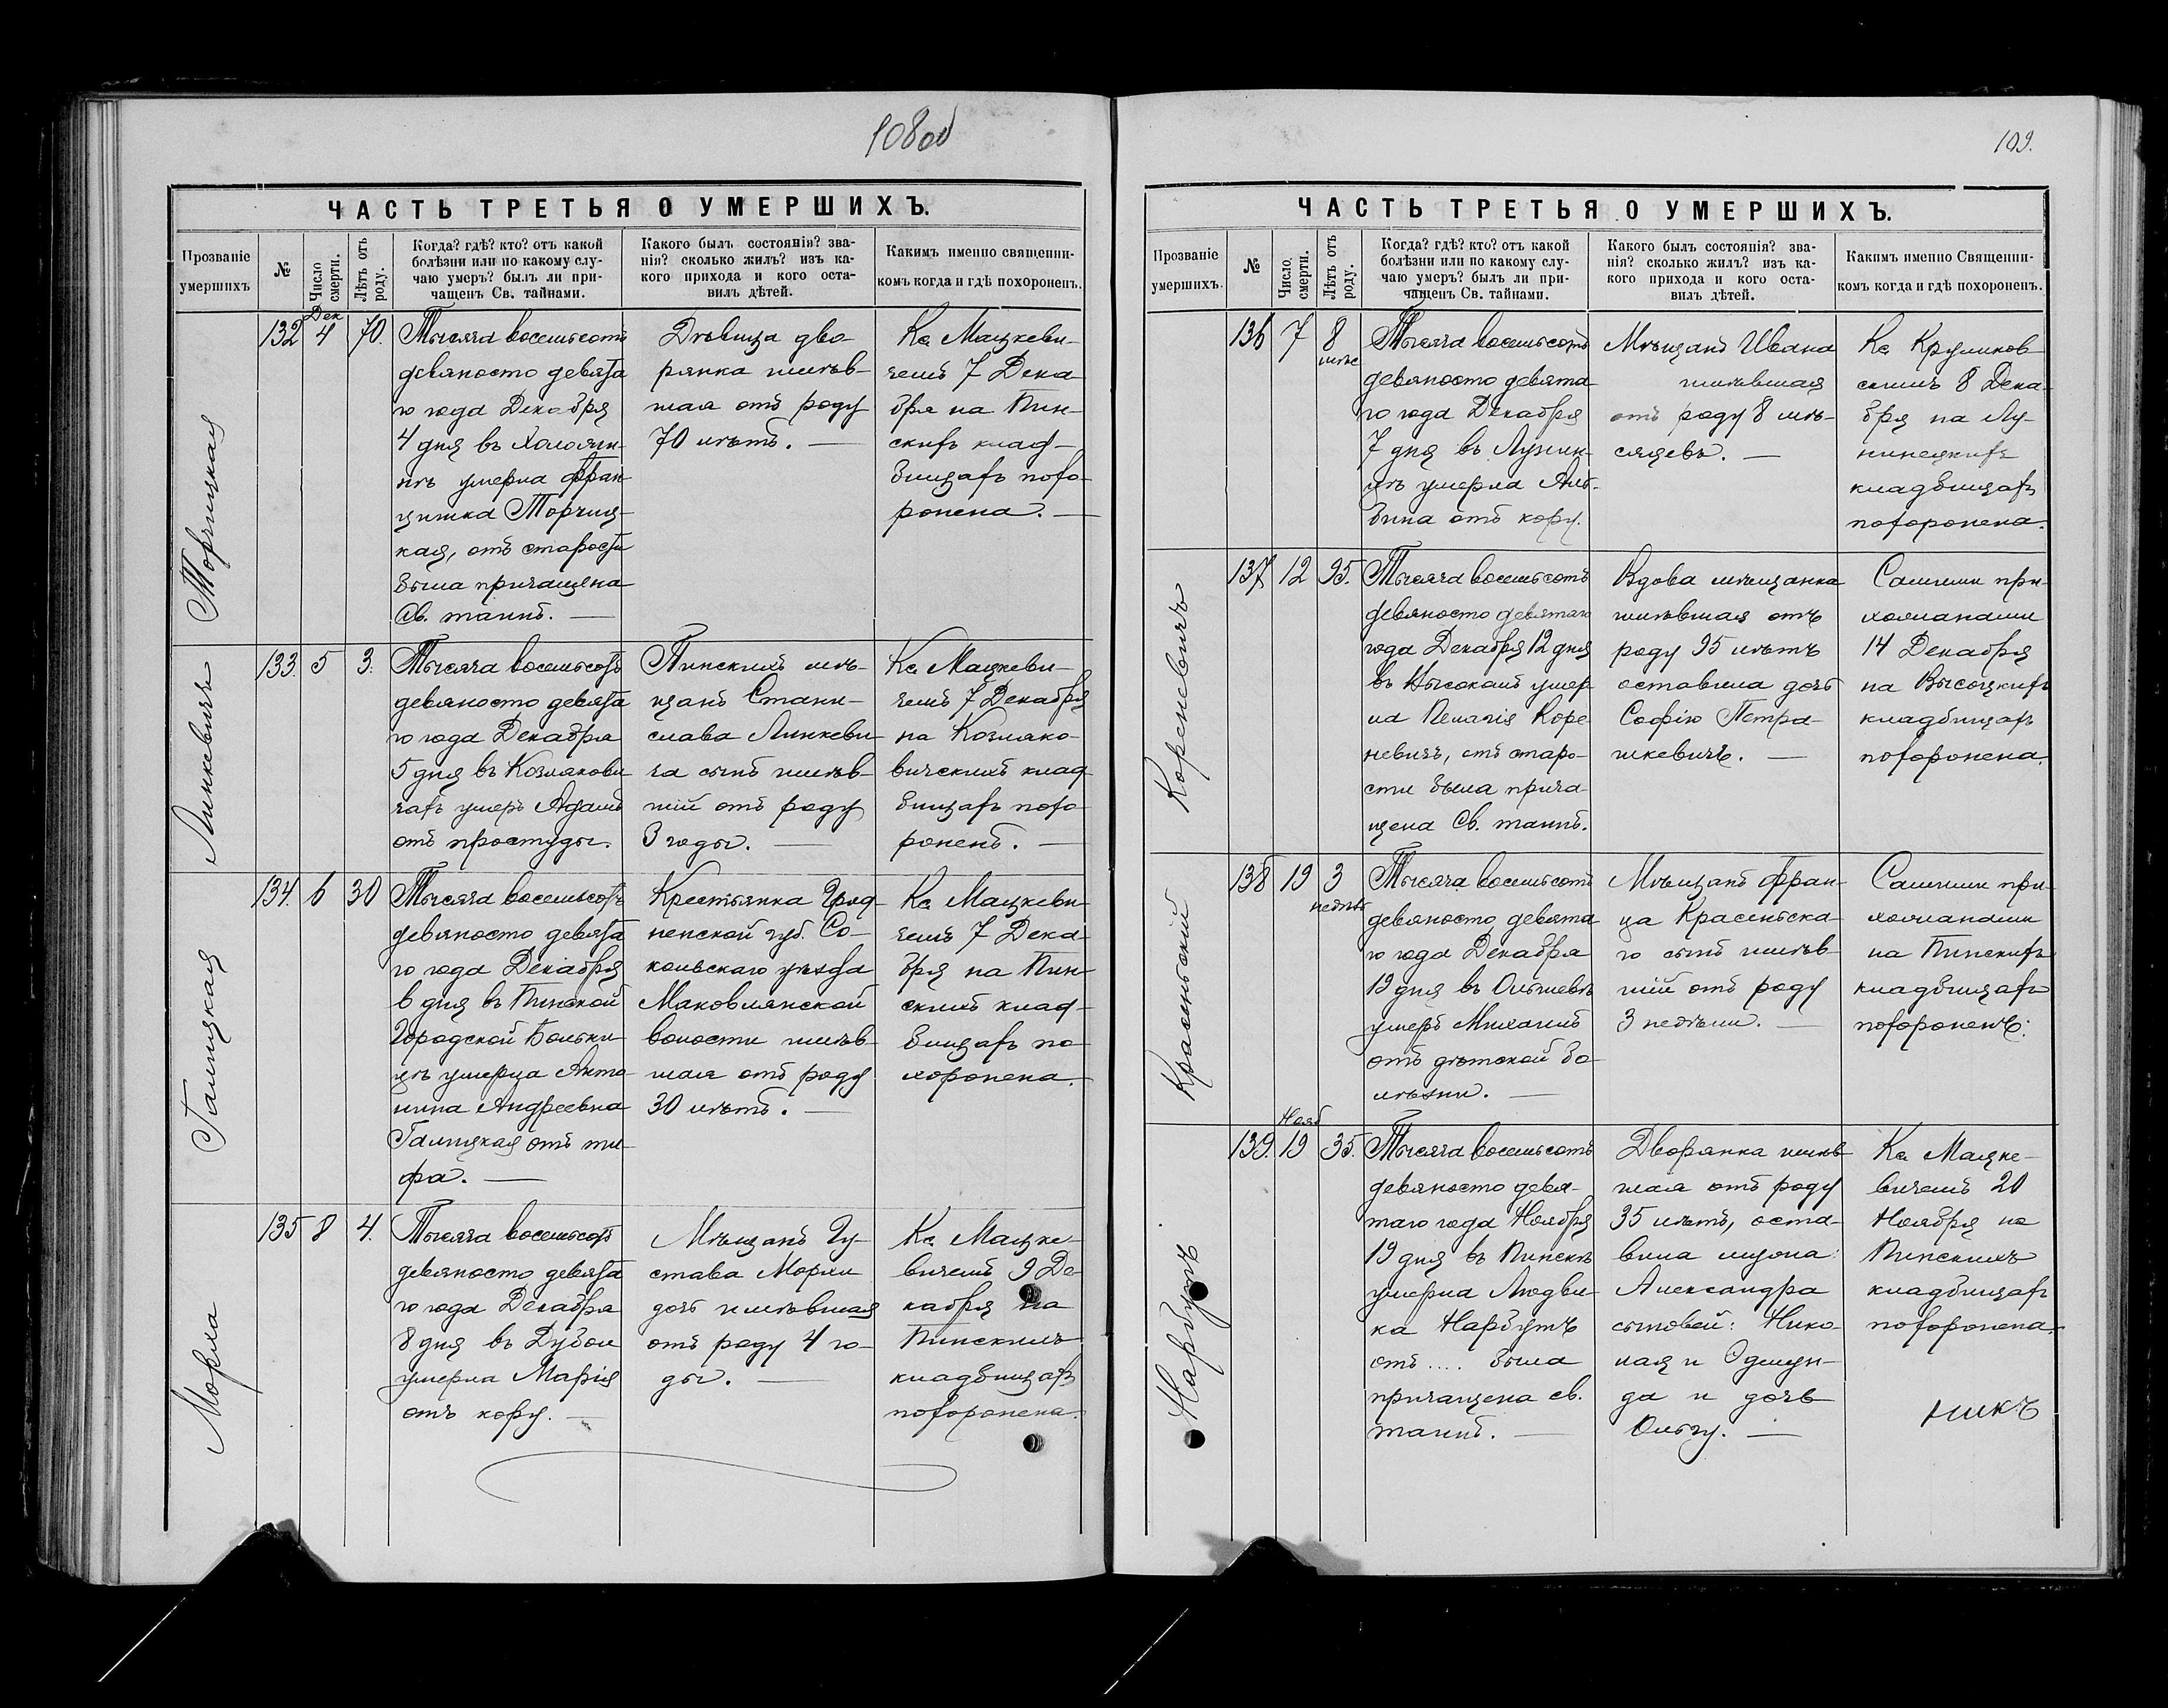 108 об
ЧАСТЬ ТРЕТЬЯ О УМЕРШИХЪ.
Прозваніе умершихъ
№
Число смерти.
Лѣтъ отъ роду.
Когда? гдѣ? кто? отъ какой
болѣзни или по какому слу-
чаю умеръ? былъ ли при-
чащенъ Св. тайнами.
Какого былъ состоянія? зва-
нія? сколько жилъ? изъ ка-
кого прихода и кого оста-
вилъ дѣтей.
Какимъ именно священни-
комъ когда и гдѣ похороненъ.
Торчицкая
132
Дек
4
70.
Тысяча восемьсотъ
девяносто девята
го года Декабря
4 дня въ
умерла Фран
цишка Торчиц-
кая, отъ старости
была причащена
Св. таинъ.
Дѣвица дво-
рянка имѣв-
шая отъ роду
70 лѣтъ.
Кс. Мацкеви-
чемъ 7 Дека
бря на Пин-
скихъ клад-
бищахъ похо-
ронена.
Линкевичъ
133.
5
3.
Тысяча восемьсотъ
девяносто девята
го года Декабря
5 дня въ Козлякови
чахъ умеръ Адамъ
отъ простуды.
Пинскихъ мѣ-
щанъ Стани-
слава Линкеви
ча сынъ имѣв-
шій отъ роду
3 годы.
Кс. Мацкеви-
чемъ 7 Декабря
на Козляко-
вичскихъ клад
бищахъ похо-
роненъ.
Галицкая
134.
6
30
Тысяча восемьсотъ
девяносто девята
го года Декабря
6 дня въ Пинской
Городской Больни
цѣ умерла Анто
нина Андреевна
Галицкая отъ ти-
фа.
Крестьянка Грод-
ненской губ. Со-
кольскаго уѣзда
Маковлянской
волости имѣв-
шая отъ роду
30 лѣтъ.
Кс. Мацкеви-
чемъ 7 Дека-
бря на Пин-
скихъ клад-
бищахъ по-
хоронена.
Морля
135
8
4.
Тысяча восемьсотъ
девяносто девята
го года Декабря
8 дня въ Дубои
умерла Марія
отъ кору.
Мѣщанъ Гу-
става Морли
дочь имѣвшая
отъ роду 4 го-
ды.
Кс. Мацке-
вичемъ 9 Де-
кабря на
Пинскихъ
кладбищахъ
похоронена.
109.
ЧАСТЬ ТРЕТЬЯ О УМЕРШИХЪ.
Прозваніе умершихъ.
№
Число смерти.
Лѣтъ отъ роду.
Когда? гдѣ? кто? отъ какой
болѣзни или по какому слу-
чаю умеръ? былъ ли при-
чащенъ Св. тайнами.
Какого былъ состоянія? зва-
нія? сколько жилъ? изъ ка-
кого прихода и кого оста-
вилъ дѣтей.
Какимъ именно Священни-
комъ когда и гдѣ похороненъ.
136
7
8
мѣс
Тысяча восемьсотъ
девяносто девята
го года Декабря
7 дня въ Лунин-
цѣ умерла Аль-
бина отъ кору.
Мѣщанъ Ивана
имѣвшая
отъ роду 8 мѣ-
сяцевъ.
Кс. Круликов
скимъ 8 Дека-
бря на Лу-
нинецкихъ
кладбищахъ
похоронена.
Кореневичъ
137
12
95.
Тысяча восемьсотъ
девяносто девятаго
года Декабря 12 дня
въ Высокомъ умер
ла Пелагія Коре
невичъ, отъ старо-
сти была прича-
щена Св. таинъ.
Вдова мѣщанка
имѣвшая отъ
роду 95 лѣтъ
оставила дочь
Софію Петра-
шкевичъ.
Самыми при-
хожанами
14 Декабря
на Высоцкихъ
кладбищахъ
похоронена.
Красеньский
138
19
3
недѣл
Тысяча восемьсотъ
девяносто девята
го года Декабря
19 дня въ Ольшевѣ
умеръ Михаилъ
отъ дѣтской бо-
лѣзни.
Мѣщанъ Фран-
ца Красеньска-
го сынъ имѣв-
шій отъ роду
3 недѣли.
Самыми при-
хожанами
на Пинскихъ
кладбищахъ
похороненъ.
Нарбутъ
139.
Нояб
19
35.
Тысяча восемьсотъ
девяносто девя-
таго года Ноября
19 дня въ Пинскѣ
умерла Людви-
ка Нарбутъ
отъ .... была
причащена св.
таинъ.
Дворянка имѣв
шая отъ роду
35 лѣтъ, оста-
вила мужа:
Александра
сыновей: Нико-
лая и Эдмун-
да и дочь
Ольгу.
Кс. Мацке-
вичемъ 20
Ноября на
Пинскихъ
кладбищахъ
похоронена.